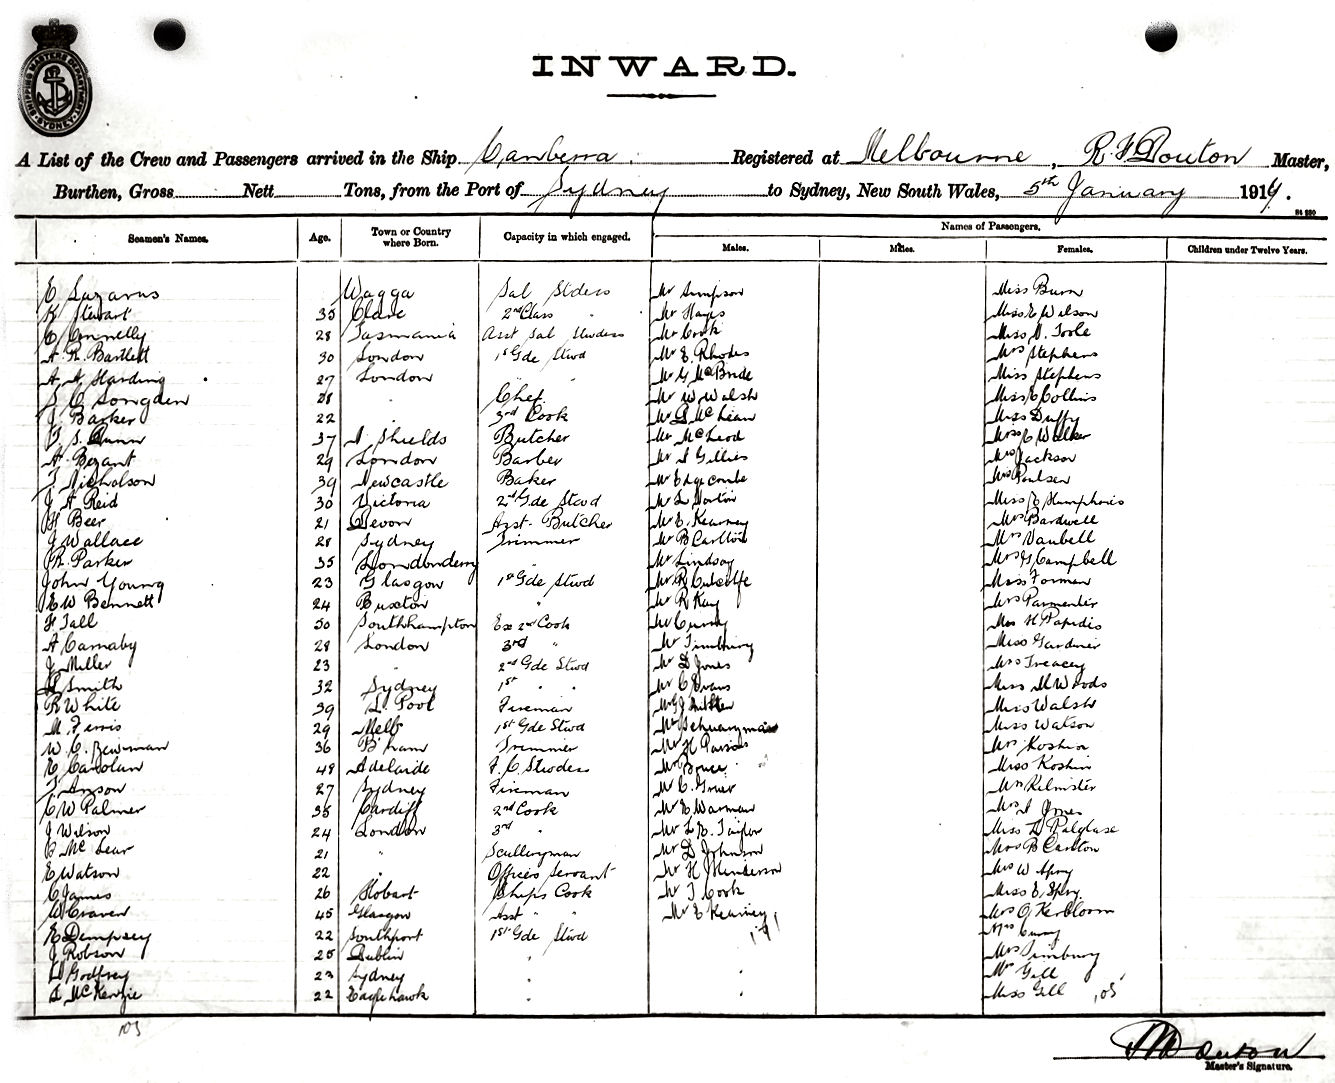 SHIPPING MASTERS DEPARTMENT SYDNEY
INWARD.
A List of the Crew and Passengers arrived in the Ship Canberra. Registered at Melbourne, Master,
Burthen, Gross Nett Tons, from the Port of Sydney to Sydney, New South Wales, 5th January 1914.
Names of Passengers.
Seamen's Names. Age. Town or Country where Born. Capacity in which engaged. Males. Males. Females. Children under Twelve Years.
E Lazarus Wagga Mr Simpson Miss Burn
K Stewart 35 Clare 2nd Class " Mr Hayes Miss E Wilson
C Connelly 28 Tasmania Asst Sal Mr Cook Miss Toole
A R. Bartlett 30 London 1st Gde Stwd Mr E. Rhodes Mrs Stephens
A A Harding 27 London " " Mr G McBride Miss Stephens
S C Songden 28 " Chef Mr W Walsh Miss C Collins
J Barker 22 3rd Cook Mr McLean Miss Duffy
37 Shields Butcher Mr McLeod C Walker
A Bezant 29 London Barber Mr Gillies Mrs Jackson
Nicholson 39 Newcastle Baker Mr Edgecombe Mrs Poulsen
J A Reid 30 Victoria 2nd Gde Stwd Mr Miss E Humphries
H Beer 21 Devon Asst. Butcher Mr E. Kearney Mrs Bardwell
J Wallace 28 Sydney Trimmer Mr B Carlton Mrs Vaubell
R. Parker 35 Londonderry " Mr Lindsay Mrs G Campbell
John Young 23 Glasgow 1st Gde Stwd Mr R Cutcliffe Miss Forman
E W Bennett 24 Buxton " Mr R Kay Mrs Parmenter
H Tall 50 Southhampton Ex 2nd Cook Mr Curry H Papidis
A Carnaby 28 London 3rd " Mr Timbury Miss Gardiner
J Miller 23 " 2nd Gde Stwd Mr D Jones Mrs Treacey
Smith 32 Sydney 1st " " Mr C Evans Miss M Woods
R White 39 L. Pool Fireman Mr Miss Walsh
M Ferris 29 Melb 1st Gde Stwd Mr Miss Watson
W. C. 36 B'ham Trimmer Mr H Parsons Mrs Koshin
E Carolan 48 Adelaide F. C. Stwdess Mr Bruce Miss Koshin
Anson 27 Sydney Fireman Mr C. Grier Mrs Kilmister
C W Palmer 35 Cardiff 2nd Cook Mr E Warman Mrs Jones
J Wilson 24 London 3rd " Mr Taylor Miss D Pilglase
Mc Lear 21 " Sculleryman Mr D Johnson Mrs B Carlton
E Watson 22 " Officers Servant Mr H Henderson Mrs W Spry
C James 26 Hobart Ships Cook Mr T Cook Miss E. Spry
W Craven 45 Glasgow Asst " " Mr E Kearney Mrs O Kerbloom
E Dempsey 22 Southport 1st Gde Stwd Mrs Curry
J Robson 25 Dublin " Mrs Timbury
Godfrey 23 Sydney " Gill
McKenzie 22 Eaglehawk " Miss Gill
105
Master's Signature.